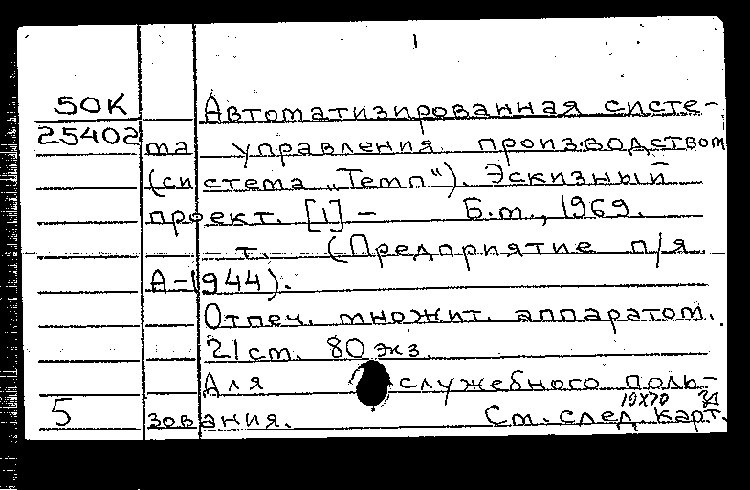 1
50К Автоматизированная систе-
25402 ма управления производством
(система „Темп"). Эскизный
проект. [1] - Б.м., 1969.
т. (Предприятие п/я
А-1944).
Отпеч. множит. аппаратом.
21 см. 80 экз.
Для служебного поль-
19х70
5 зования. См. след. карт.